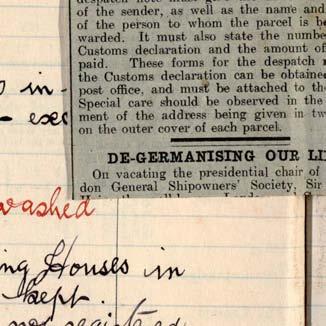 despatch note must give
of the sender, as well as the name and
of the person to whom the parcel is b
warded. It must also state the numbe
Customs declaration and the amount of
paid. These forms for the despatch n
the Customs declaration can be obtaine
post office, and must be attached to the
Special care should be observed in the
ment of the address being given in tw
on the outer cover of each parcel.
DE-GERMANISING OUR LI
On vacating the presidential chair of
don General Shipowners' Society, Sir
s in-
- exec
washed
ing Houses in
kept.
not registered